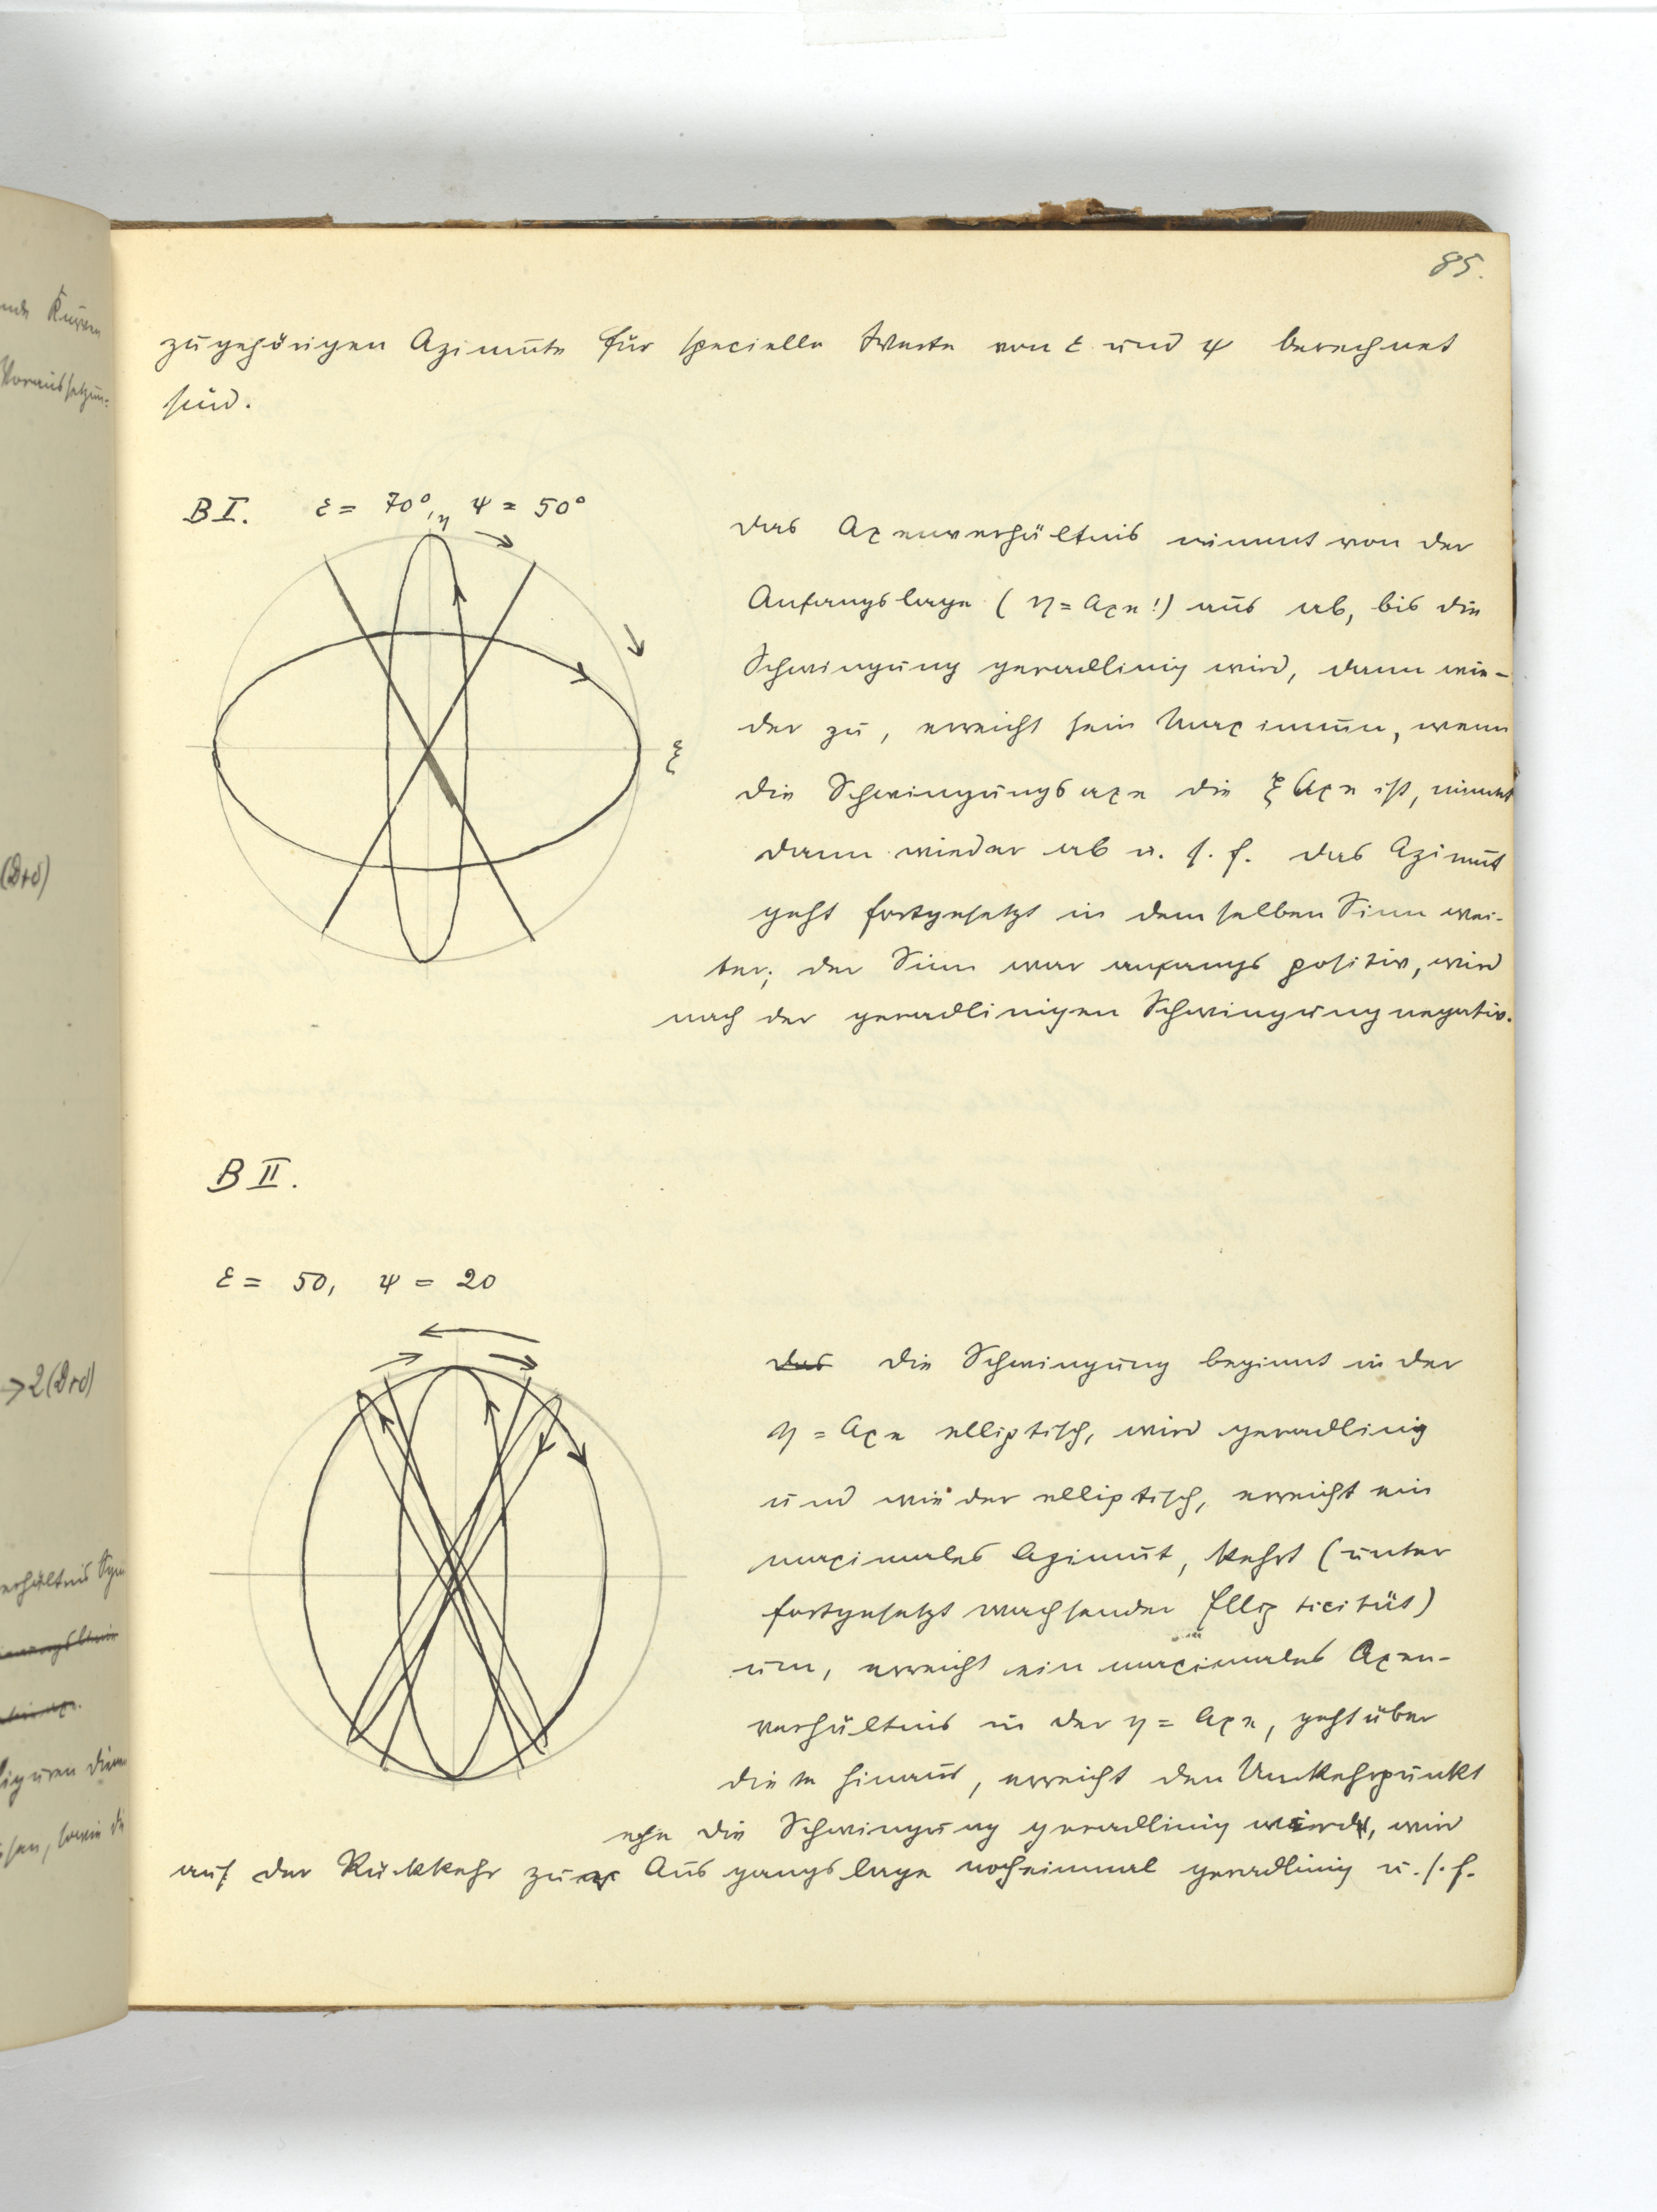 85.
zugehörigen Azimute für specielle Werte von ε und ψ berechnet
sind.
B I. ε = 70°, ψ = 50°
η
ξ
das Axenverhältnis nimmt von der
Anfangslage (η = Axe!) aus ab, bis die
Schwingung geradlinig wird, dann wie-
der zu, erreicht sein Maximum, wenn
die Schwingungsaxe die ξ Axe ist, nimmt
dann wieder ab u. s. f. das Azimut
geht fortgesetzt in demselben Sinn wei-
ter; der Sinn war anfangs positiv, wird
nach der geradlinigen Schwingung negativ.
B II.
ε = 50, ψ = 20
das die Schwingung beginnt in der
η = Axe elliptisch, wird geradlinig
und wieder elliptisch, erreicht ein
maximales Azimut, kehrt (unter
fortgesetzt wachsender Ellipticität)
um, erreicht ein maximales Axen-
verhältnis in der η = Axe, geht über
diese hinaus, erreicht den Umkehrpunkt
ehe die Schwingung geradlinig wird, wird
auf der Rückkehr zur Ausgangslage nocheinmal geradlinig u. s. f.
Kurven
Voraussetzun-
(D+δ)
→2(D+δ)